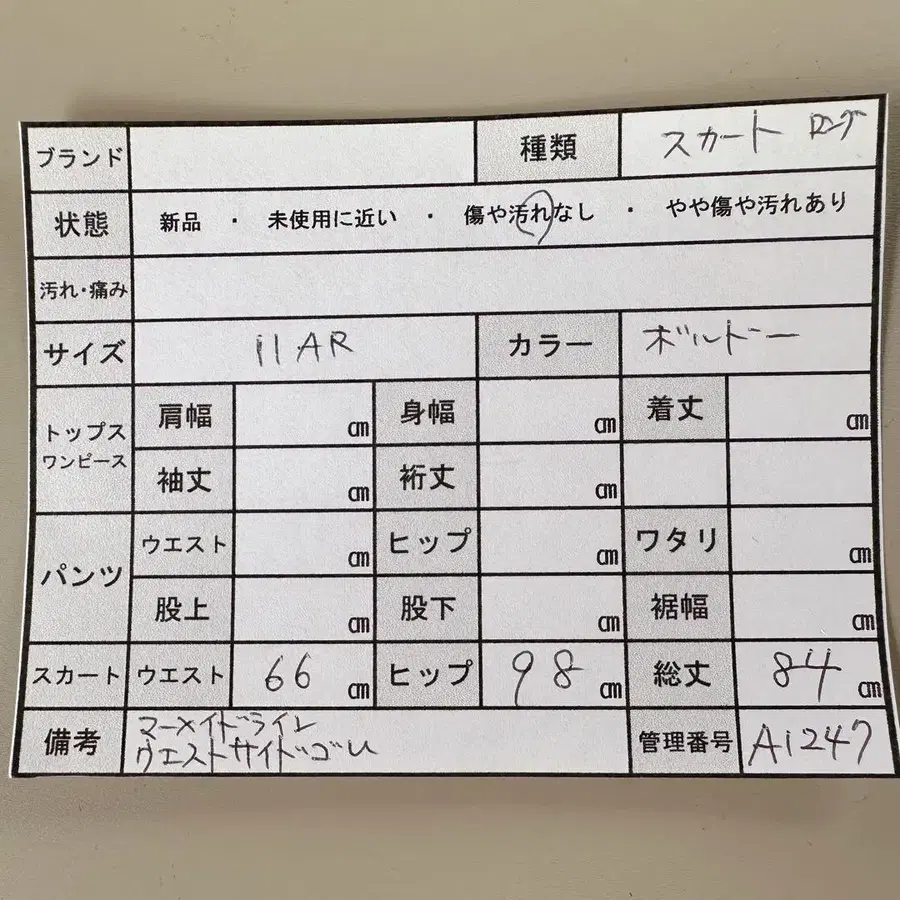 ブランド 種類 スカート ロング
状態 新品 ・ 未使用に近い ・ 傷や汚れなし ・ やや傷や汚れあり
汚れ・痛み
サイズ 11AR カラー ボルドー
トップス
ワンピース
肩幅 ㎝ 身幅 ㎝ 着丈 ㎝
袖丈 ㎝ 裄丈 ㎝
パンツ
ウエスト ㎝ ヒップ ㎝ ワタリ ㎝
股上 ㎝ 股下 ㎝ 裾幅 ㎝
スカート ウエスト 66 ㎝ ヒップ 98 ㎝ 総丈 84 ㎝
備考
マーメイドライン
ウエストサイドゴム
管理番号 A1247